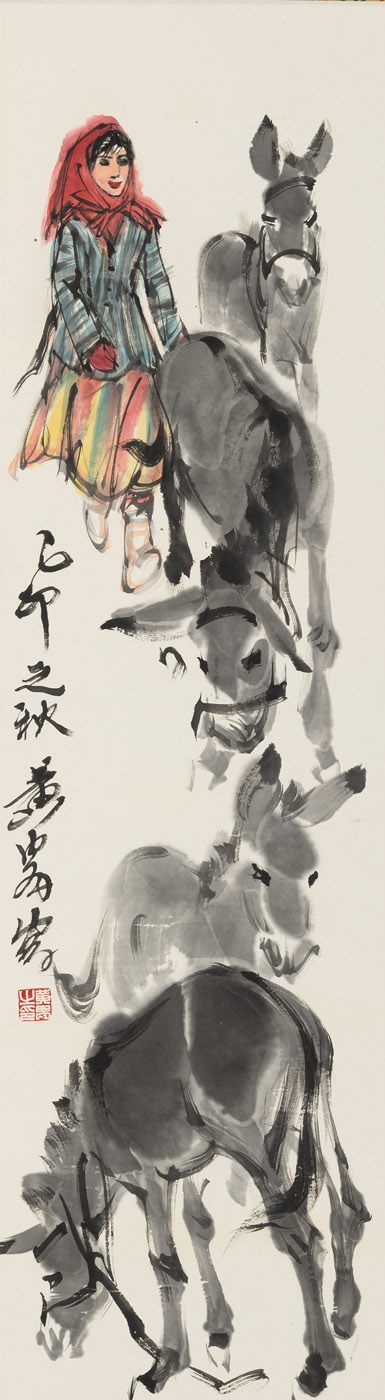 己卯之秋黄胄写
黄胄之印